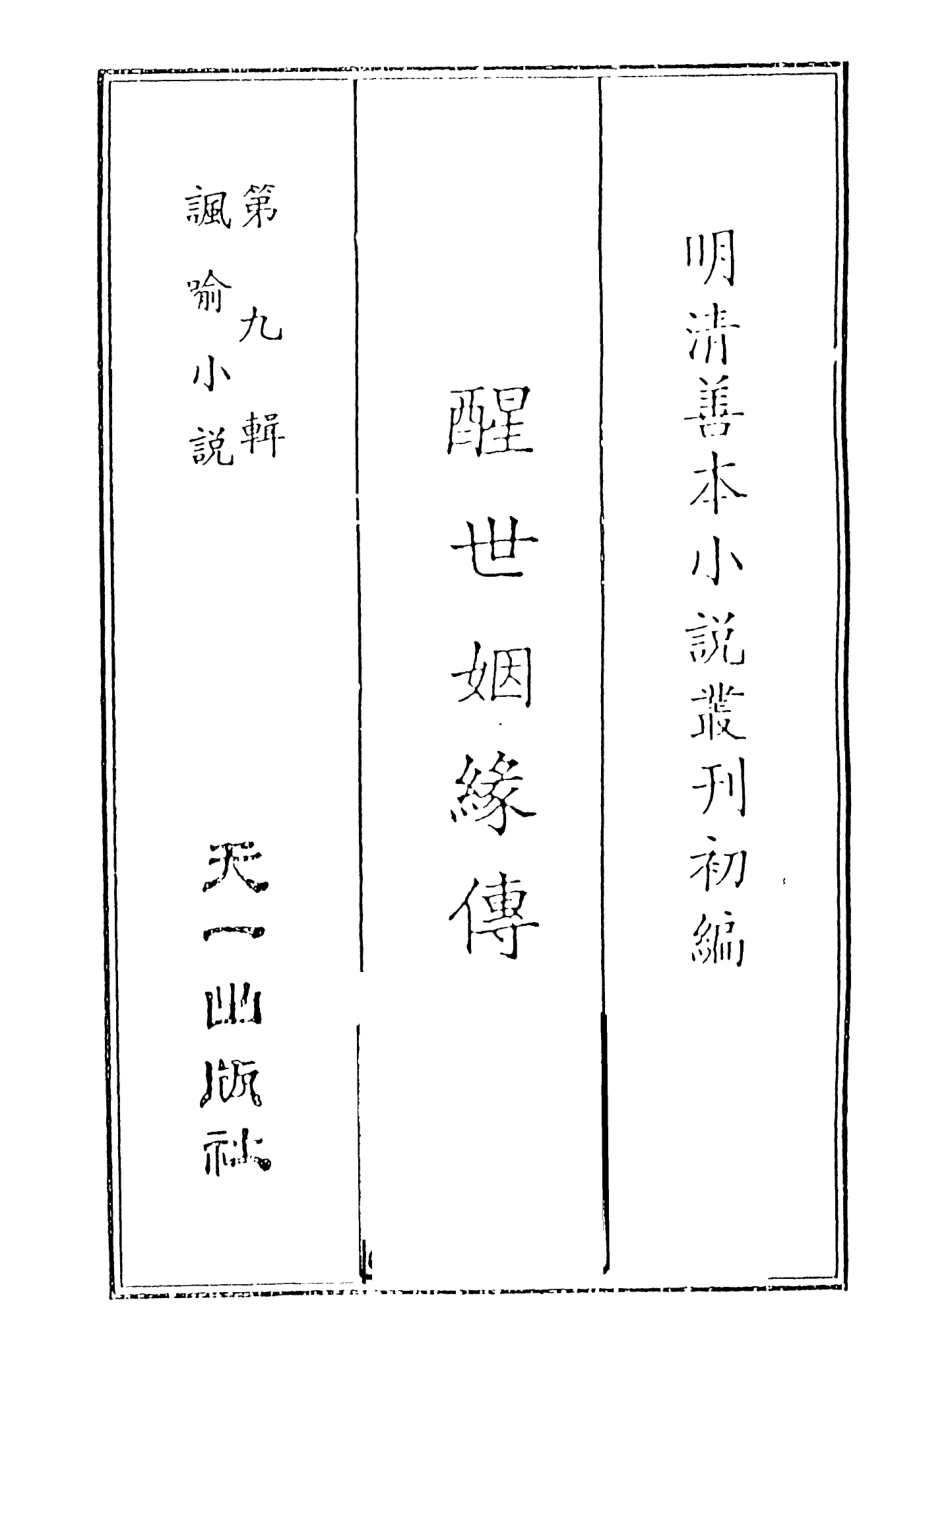 明清善本小説叢刊初編
醒世姻緣傳
第九輯
諷喻小説
天一出版社